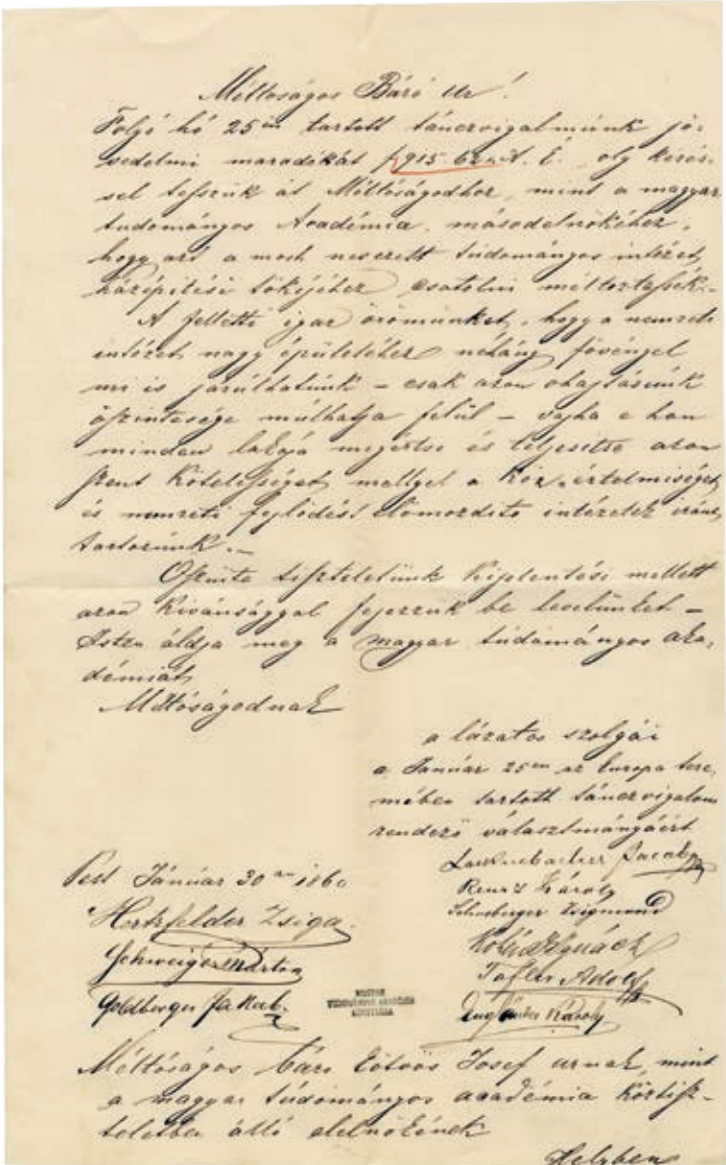 Méltoságos Báró Ur!
Folyó hó 25én tartott tánczvigalmunk jö-
vedelmi maradékát f 915. 62 A. É. oly kérés-
sel teszük át Méltóságodhoz, mint a magyar
tudományos Academia másodelnökéhez,
hogy azt a most nevezett tudományos intézet
házépitési tökéjéhez csatolni méltoztassék.-
A felletti igaz örömünket, hogy a nemzeti
intézet nagy épületéhez néhány fövénnyel
mi is járúlhatunk - csak azon ohajtásunk
öszintesége múlhatja felül - vajha e hon
minden lakója megértse és teljesitse azon
szent kötelességet mellyel a köz-értelmiséget
és nemzeti fejlödést elömozdito intézetek iránt
tartozunk.-
Öszinte tiszteletünk kijelentési mellett
azon kivánsággal fejezzük be levelünket -
Isten áldja meg a magyar tudományos aka-
démiát
Méltóságodnak
alázatos szolgái
a Január 25én az Europa tere-
mében tartott tánczvigalom
rendezö választmányáért
Pest Január 30án 1860
Károly
Zsigmond
Hertzfelder Zsiga
Ignácz
Schweiger Márton
Adolf
Goldberger Jakab.
Károly
MAGYAR
TUDOMÁNYOS AKADÉMIA
Méltóságos báro Eötvös Josef urnak, mint
a magyar tudományos academia köztisz-
teletben álló elelnökének
Helyben